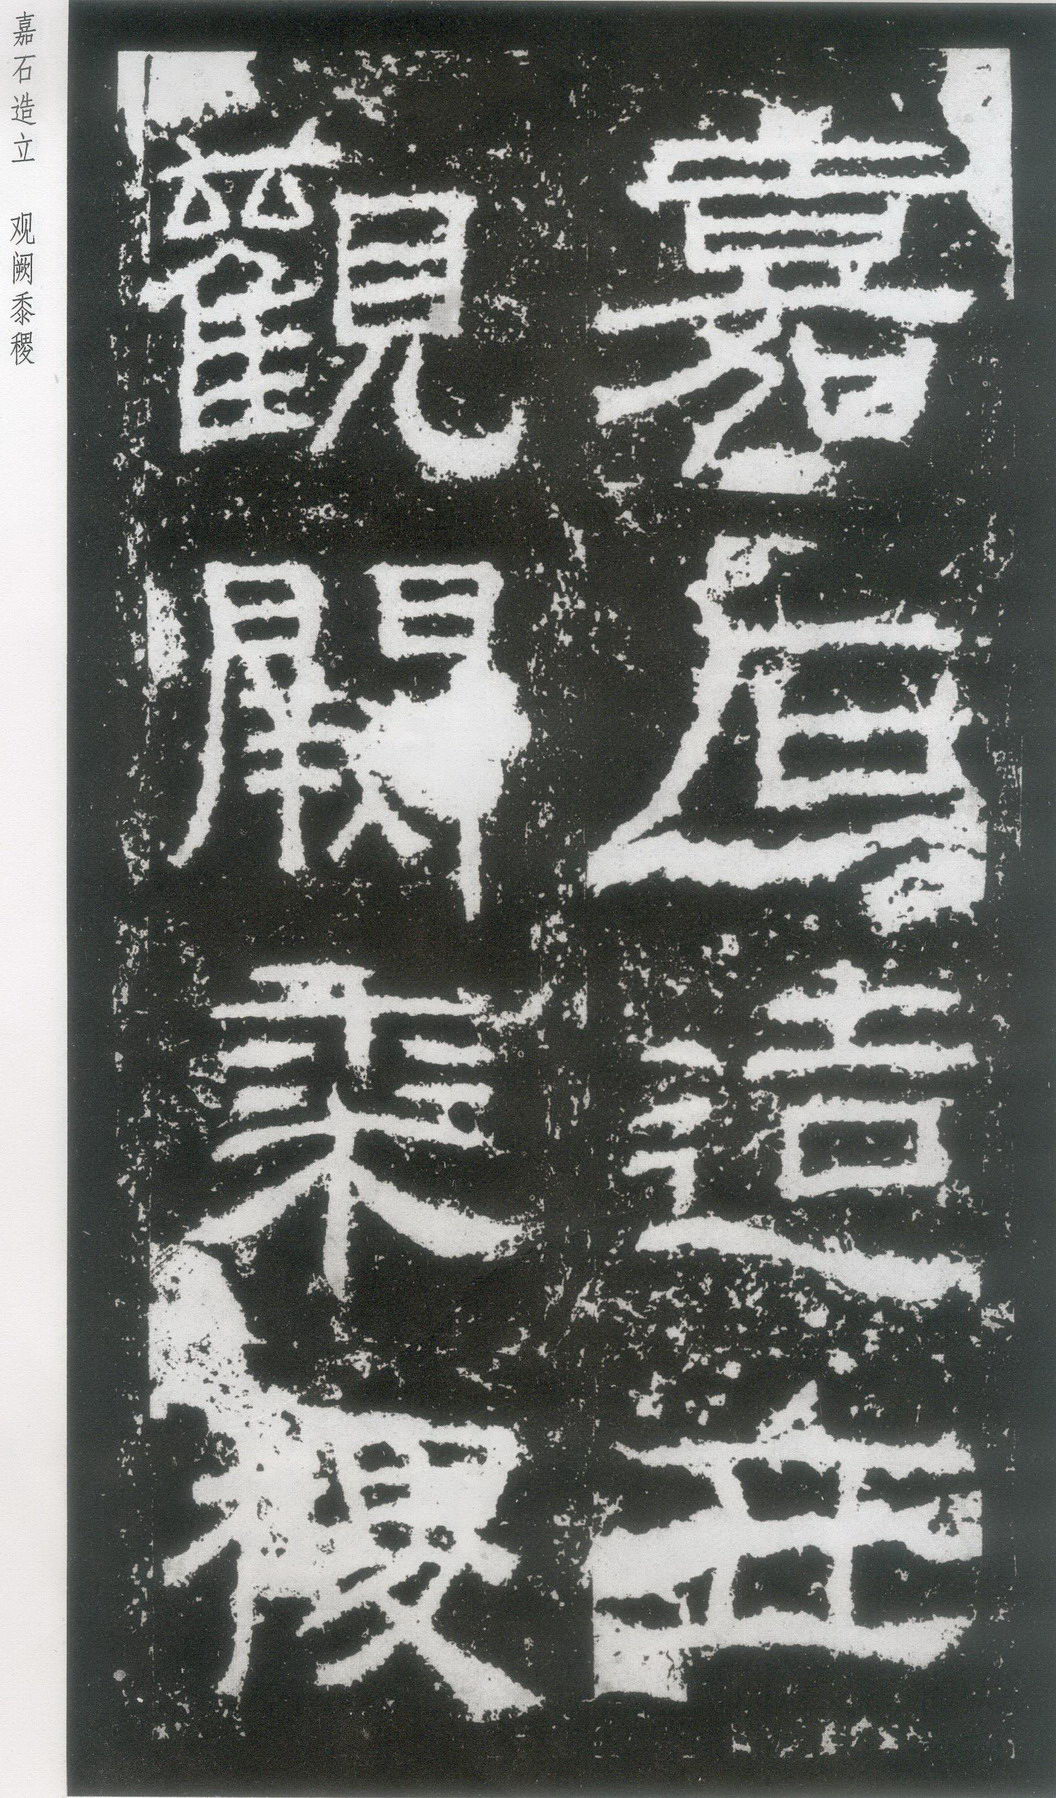 嘉石造立
觀闕黍稷
嘉石造立 观阙黍稷